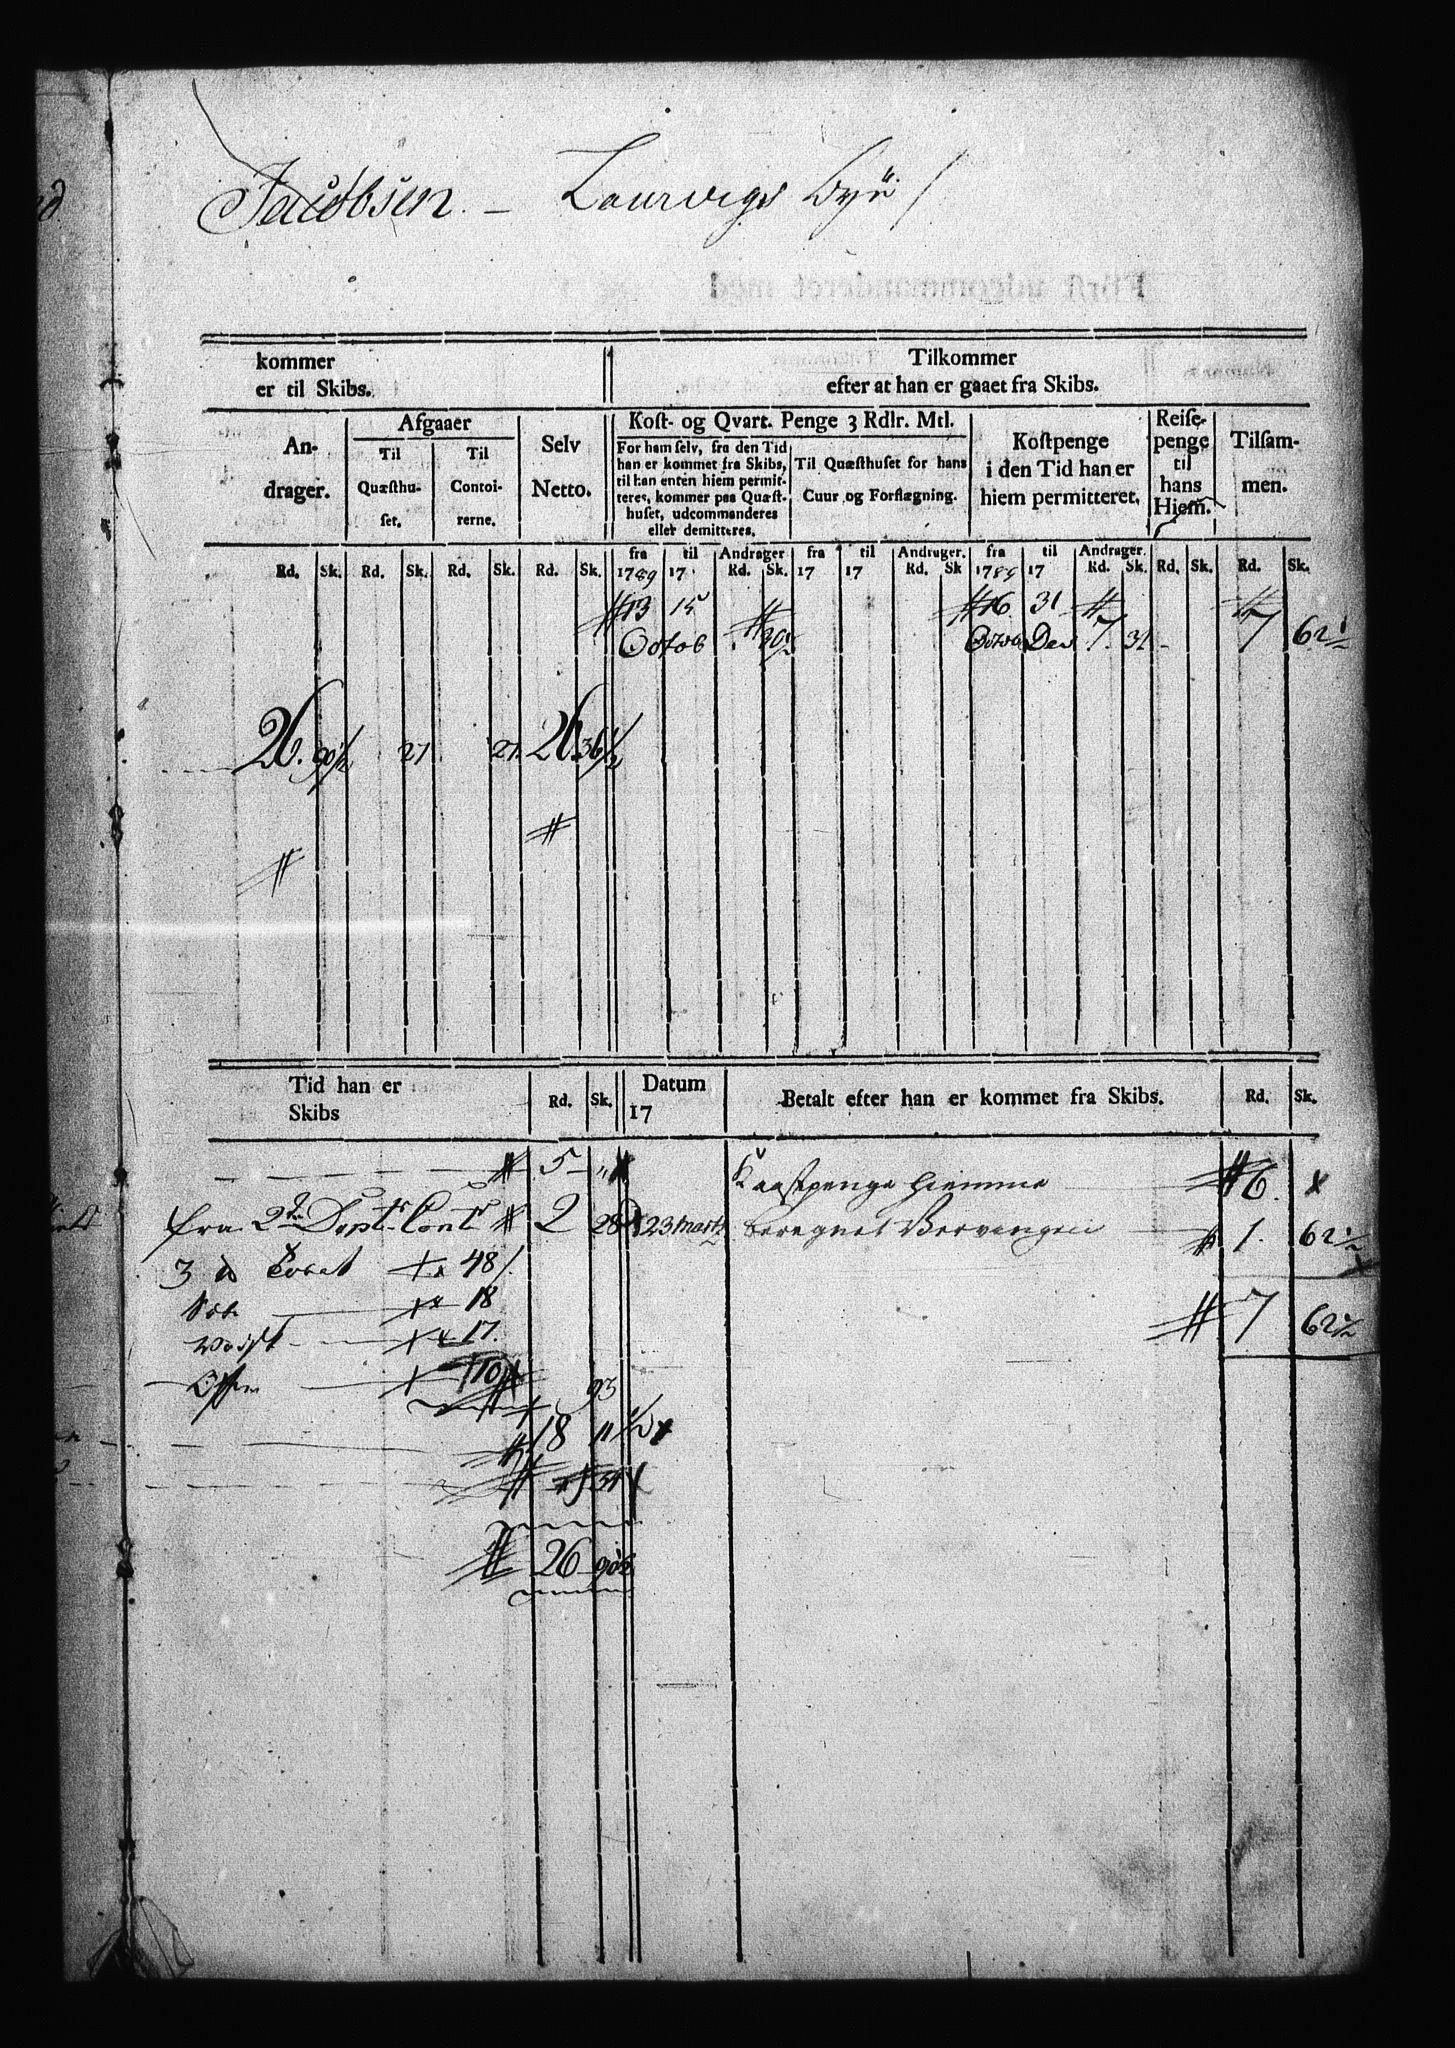 Jacobsen. — Laurvigs Bye /
kommer
er til Skibs.
Tilkommer
efter at han er gaaet fra Skibs.
An-
drager.
Afgaaer
Til
Quæsthu-
set.
Til
Contoi-
rerne.
Selv
Netto.
Kost- og Qvart. Penge 3 Rdlr. Mtl.
For ham selv, fra den Tid
han er kommet fra Skibs,
til han enten hiem permit-
teres, kommer paa Quæst-
huset, udcommanderes
eller demitteres.
Til Quæsthuset for hans
Cuur og Forflægning.
Kostpenge
i den Tid han er
hiem permitteret.
Reise-
penge
til
hans
Hiem.
Tilsam-
men.
fra til Andrager fra til Andrager. fra til Andrager.
Rd. Sk. Rd. Sk. Rd. Sk. Rd. Sk. 1789 17 Rd. Sk. 17 17 Rd. Sk 1789 17 Rd. Sk. Rd. Sk. Rd. Sk.
13 15 16 31
Octob 30½ Octob Dec 7. 31 7 62½
26. 90½ 27 27 26. 36½
Tid han er
Skibs
Rd. Sk.
Datum
17
Betalt efter han er kommet fra Skibs.
Rd. Sk.
5 — „ Kaastpenge hiemme 6.
fra 2de Dept. Cont 2 28 23 Marts beregnet 1. 62½
3 48
18 7 62½
17.
110
93
18 11½
26 90½